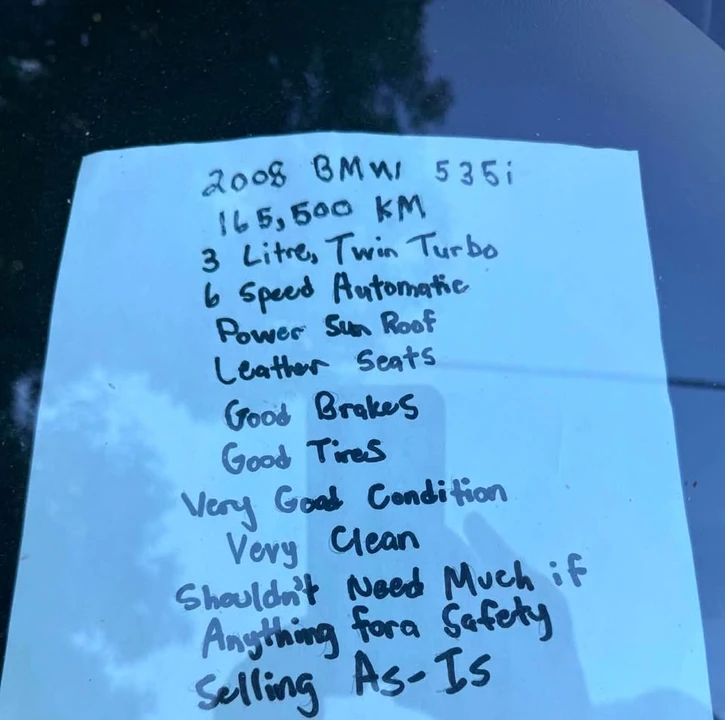 2008 BMW 535i
165,500 KM
3 Litre, Twin Turbo
6 Speed Automatic
Power Sun Roof
Leather Seats
Good Brakes
Good Tires
Very Good Condition
Very Clean
Shouldn't Need Much if
Anything for a Safety
Selling As-Is